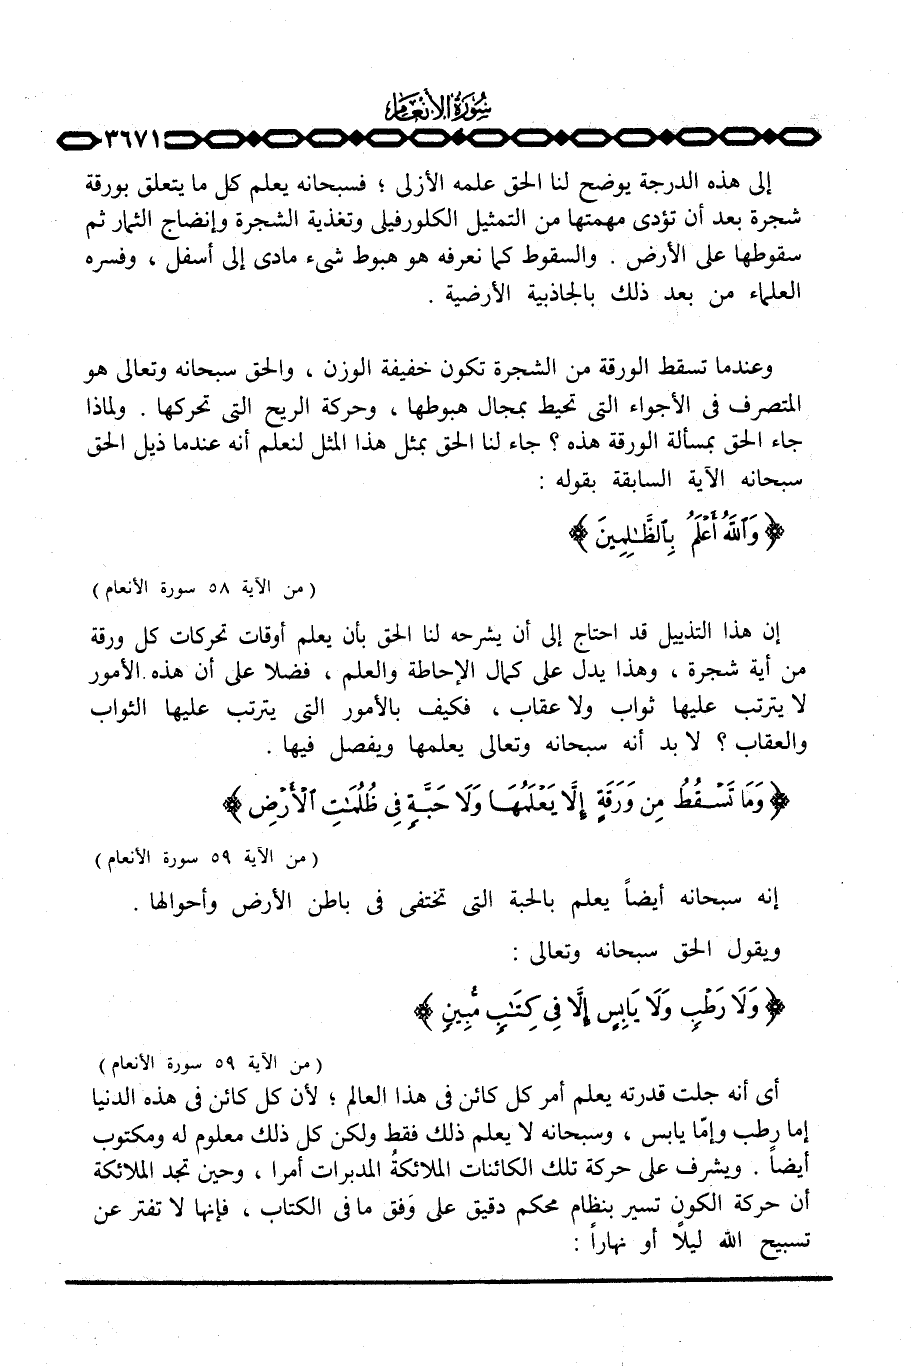 سُورَةُ الأَنْعَامِ
٣٦٧١
إلى هذه الدرجة يوضح لنا الحق علمه الأزلى ؛ فسبحانه يعلم كل ما يتعلق بورقة
شجرة بعد أن تؤدى مهمتها من التمثيل الكلورفيلى وتغذية الشجرة وإنضاج الثمار ثم
سقوطها على الأرض . والسقوط كما نعرفه هو هبوط شىء مادى إلى أسفل ، وفسره
العلماء من بعد ذلك بالجاذبية الأرضية .
وعندما تسقط الورقة من الشجرة تكون خفيفة الوزن ، والحق سبحانه وتعالى هو
المتصرف فى الأجواء التى تحيط بمجال هبوطها ، وحركة الريح التى تحركها . ولماذا
جاء الحق بمسألة الورقة هذه ؟ جاء لنا الحق بمثل هذا المثل لنعلم أنه عندما ذيل الحق
سبحانه الآية السابقة بقوله :
﴿ وَٱللَّهُ أَعْلَمُ بِٱلظَّٰلِمِينَ ﴾
( من الآية ٥٨ سورة الأنعام )
إن هذا التذييل قد احتاج إلى أن يشرحه لنا الحق بأن يعلم أوقات تحركات كل ورقة
من أية شجرة ، وهذا يدل على كمال الإحاطة والعلم ، فضلا على أن هذه الأمور
لا يترتب عليها ثواب ولا عقاب ، فكيف بالأمور التى يترتب عليها الثواب
والعقاب ؟ لا بد أنه سبحانه وتعالى يعلمها ويفصل فيها .
﴿ وَمَا تَسْقُطُ مِن وَرَقَةٍ إِلَّا يَعْلَمُهَا وَلَا حَبَّةٍ فِى ظُلُمَٰتِ ٱلْأَرْضِ ﴾
( من الآية ٥٩ سورة الأنعام )
إنه سبحانه أيضاً يعلم بالحبة التى تختفى فى باطن الأرض وأحوالها .
ويقول الحق سبحانه وتعالى :
﴿ وَلَا رَطْبٍ وَلَا يَابِسٍ إِلَّا فِى كِتَٰبٍ مُّبِينٍ ﴾
( من الآية ٥٩ سورة الأنعام )
أى أنه جلت قدرته يعلم أمر كل كائن فى هذا العالم ؛ لأن كل كائن فى هذه الدنيا
إما رطب وإمّا يابس ، وسبحانه لا يعلم ذلك فقط ولكن كل ذلك معلوم له ومكتوب
أيضاً . ويشرف على حركة تلك الكائنات الملائكةُ المدبرات أمرا ، وحين تجد الملائكة
أن حركة الكون تسير بنظام محكم دقيق على وَفق ما فى الكتاب ، فإنها لا تفتر عن
تسبيح الله ليلًا أو نهاراً :